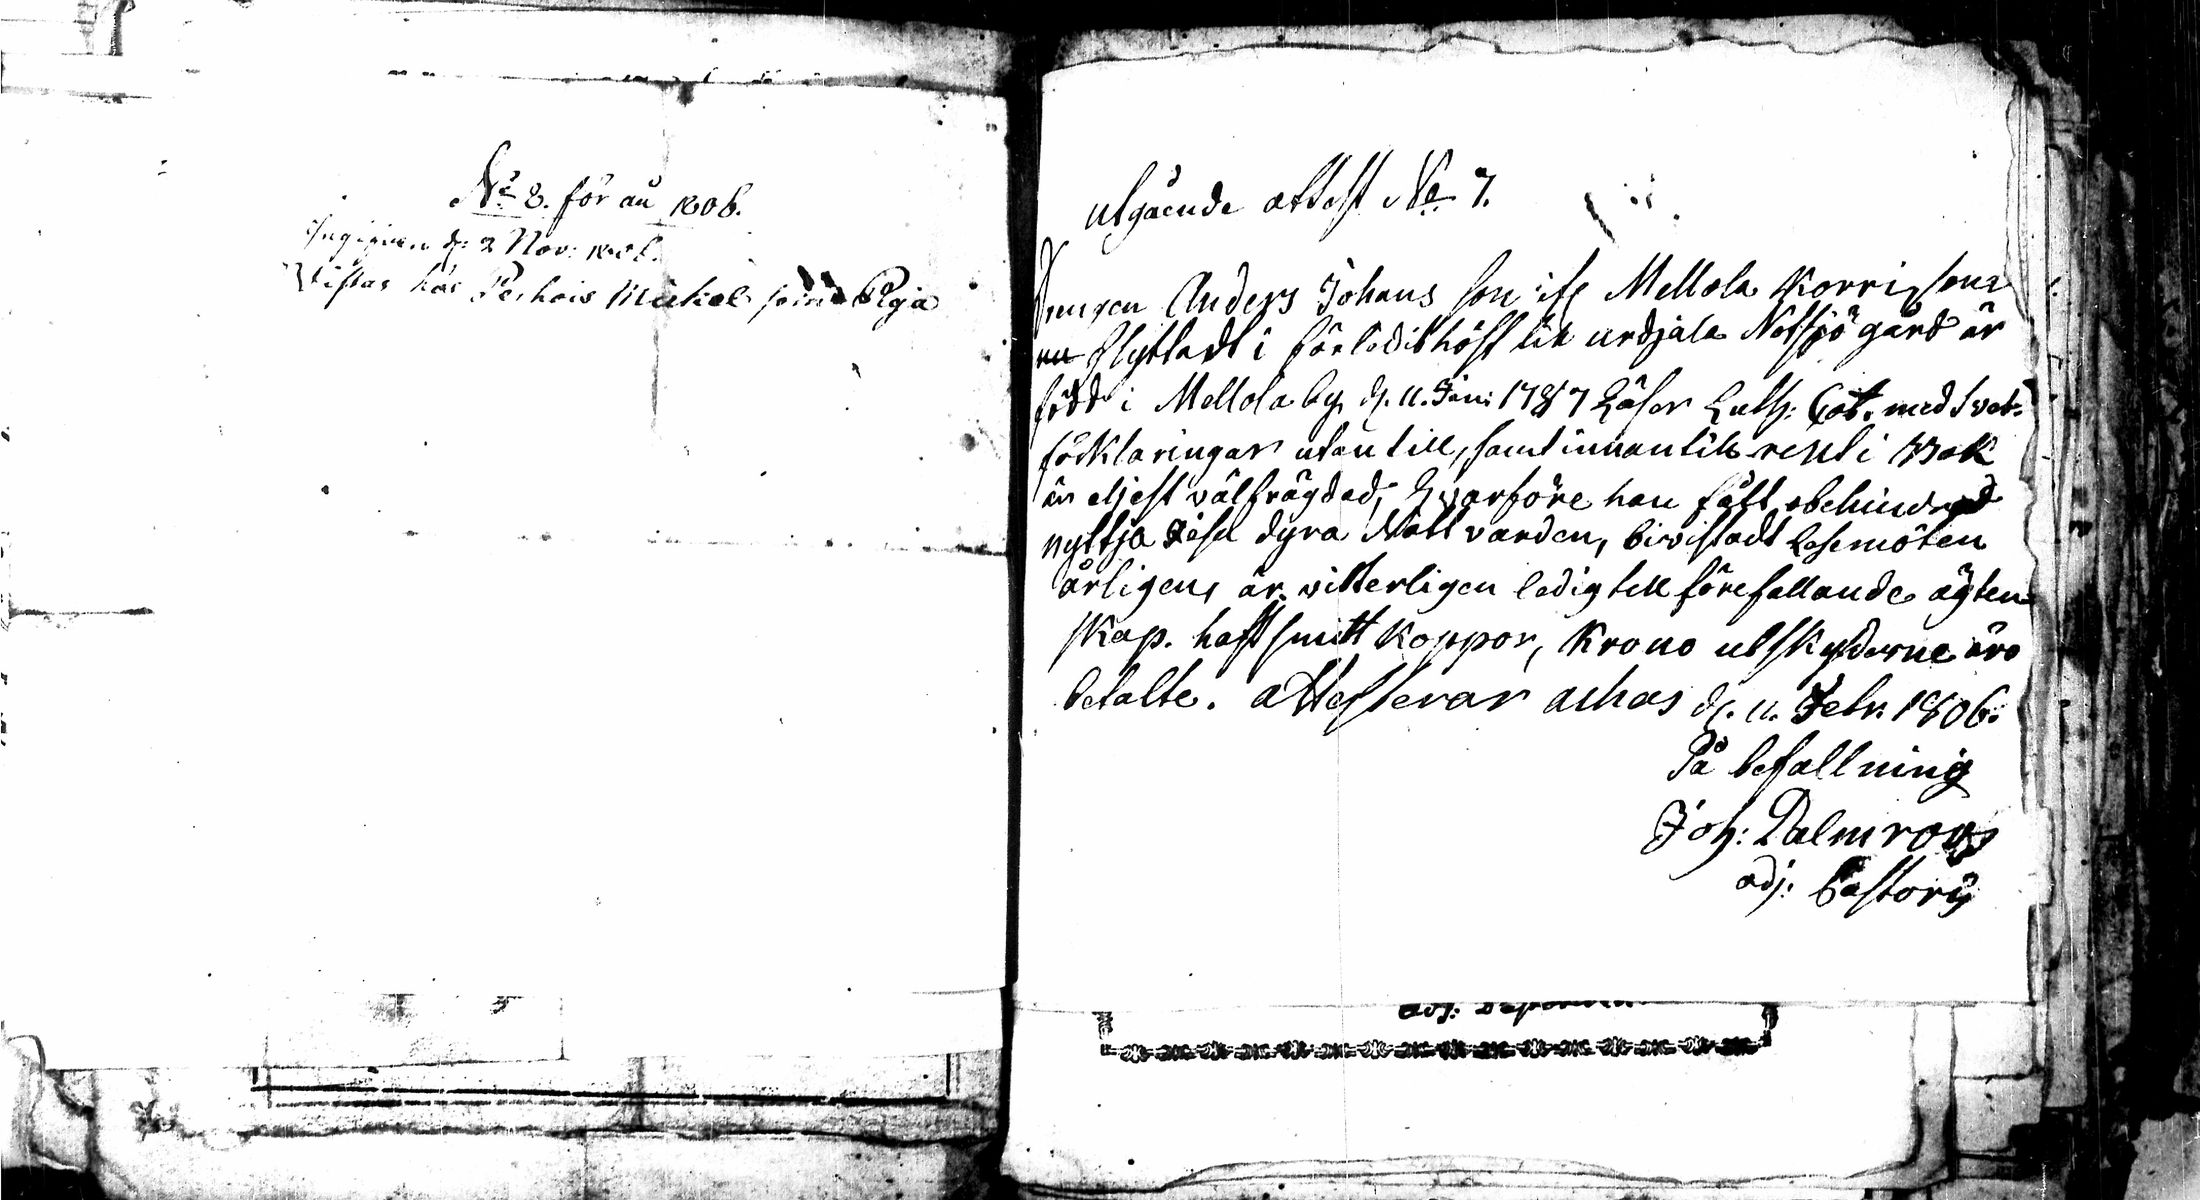 No 8. för åu 1806.
Ingifven d: 2 Nov: 1806.
Vistas hos Perhois Mickel såsom
utgående attest No 7.
Drengen Anders Johans son if Mellola Korri
flyttadt i förledit höst till urdjala Notsjö gård är
född i Mellola by d. 11. Jan: 1787 Läser Luth: Cat. med svet.
förklaringar utan till, samt innantill rent i Bok
är eljest välfrägdad, hvarföre han fått obehindrad
nyttja dess dyra Natt varden, bivistadt Läsemöten
årligen, är vitterligen ledig till förefallande ägten
skap. haft smitt koppor, Krono utskylderne äro
betalte. attesterar achas d. 11. Febr. 1806.
På befallning
Joh: Palmroos
adj: Pastoris
adj: